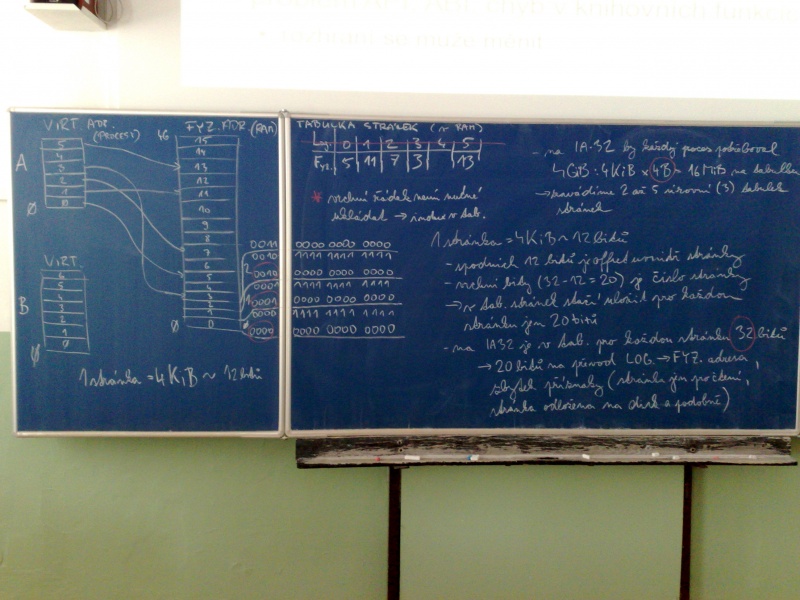 v knihovních funkc
se může měnit
VIRT. ADR.
(PROCESU)
A
5
4
3
2
1
0
Ø
VIRT.
B
6
5
4
3
2
1
0
Ø
1 stránka = 4KiB ~ 12 bitů
FYZ. ADR. (RAM)
15
14
13
12
11
10
9
8
7
6
5
4
3
2
1
0
Ø
0011 0000 0000 0000
0010 1111 1111 1111
0010 0000 0000 0000
0001 1111 1111 1111
0001 0000 0000 0000
0000 1111 1111 1111
0000 0000 0000 0000
TABULKA STRÁNEK (v RAM)
Log. 0 1 2 3 4 5
Fyz. 5 11 7 3 13
* vrchní řádek není nutné
ukládat → index v tab.
- na IA-32 by každý proces potřeboval
4GB : 4KiB × 4B = 4MiB na tabulku
→ zavádíme 2 až 5 úrovní (3) tabulek
stránek
1 stránka = 4KiB ~ 12 bitů
- spodních 12 bitů je offset uvnitř stránky
- vrchní bity (32-12=20) je číslo stránky
→ v tab. stránek stačí uložit pro každou
stránku jen 20 bitů
- na IA32 je v tab. pro každou stránku 32 bitů
→ 20 bitů na převod LOG. → FYZ. adresa,
zbytek příznaky (stránka jen pro čtení,
stránka odložena na disk a podobně)